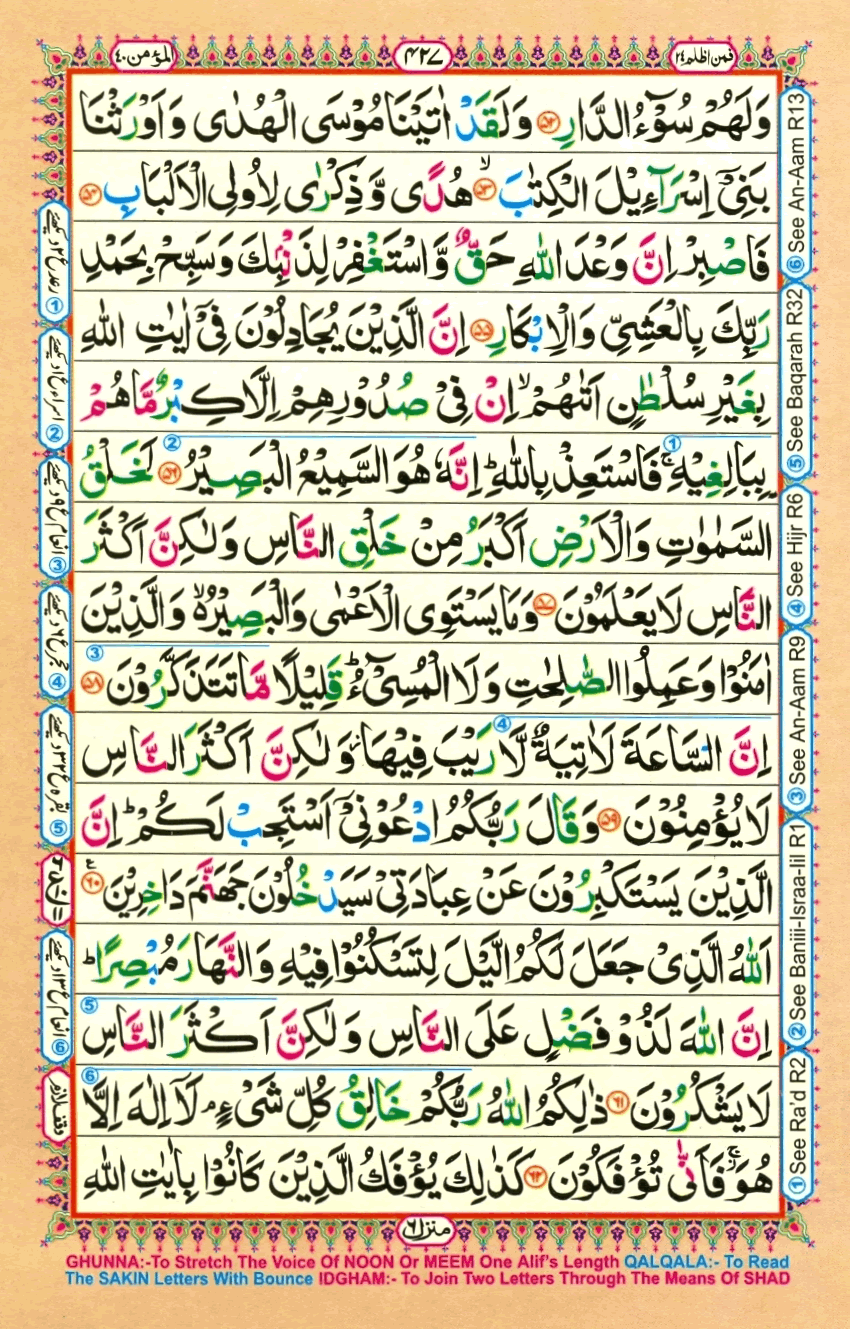 فمن اظلم ٢٤
٤٢٧
المؤمن ٤٠
وَلَهُمْ سُوْٓءُ الدَّارِ ۝٥٢ وَلَقَدْ اٰتَيْنَا مُوْسَى الْهُدٰى وَاَوْرَثْنَا
بَنِيْٓ اِسْرَآءِيْلَ الْكِتٰبَ ۝٥٣ۙ هُدًى وَّذِكْرٰى لِاُولِى الْاَلْبَابِ ۝٥٤
فَاصْبِرْ اِنَّ وَعْدَ اللّٰهِ حَقٌّ وَّاسْتَغْفِرْ لِذَنْۢبِكَ وَسَبِّحْ بِحَمْدِ
رَبِّكَ بِالْعَشِيِّ وَالْاِبْكَارِ ۝٥٥ اِنَّ الَّذِيْنَ يُجَادِلُوْنَ فِيْٓ اٰيٰتِ اللّٰهِ
بِغَيْرِ سُلْطٰنٍ اَتٰىهُمْ ۙ اِنْ فِيْ صُدُوْرِهِمْ اِلَّا كِبْرٌ مَّا هُمْ
بِبَالِغِيْهِ ۚ فَاسْتَعِذْ بِاللّٰهِ ؕ اِنَّهٗ هُوَ السَّمِيْعُ الْبَصِيْرُ ۝٥٦ لَخَلْقُ
السَّمٰوٰتِ وَالْاَرْضِ اَكْبَرُ مِنْ خَلْقِ النَّاسِ وَلٰكِنَّ اَكْثَرَ
النَّاسِ لَا يَعْلَمُوْنَ ۝٥٧ وَمَا يَسْتَوِى الْاَعْمٰى وَالْبَصِيْرُ ۙ۬ وَالَّذِيْنَ
اٰمَنُوْا وَعَمِلُوا الصّٰلِحٰتِ وَلَا الْمُسِيْٓءُ ؕ قَلِيْلًا مَّا تَتَذَكَّرُوْنَ ۝٥٨
اِنَّ السَّاعَةَ لَاٰتِيَةٌ لَّا رَيْبَ فِيْهَا ؗ وَلٰكِنَّ اَكْثَرَ النَّاسِ
لَا يُؤْمِنُوْنَ ۝٥٩ وَقَالَ رَبُّكُمُ ادْعُوْنِيْٓ اَسْتَجِبْ لَكُمْ ؕ اِنَّ
الَّذِيْنَ يَسْتَكْبِرُوْنَ عَنْ عِبَادَتِيْ سَيَدْخُلُوْنَ جَهَنَّمَ دَاخِرِيْنَ ۝٦٠
اَللّٰهُ الَّذِيْ جَعَلَ لَكُمُ الَّيْلَ لِتَسْكُنُوْا فِيْهِ وَالنَّهَارَ مُبْصِرًا ؕ
اِنَّ اللّٰهَ لَذُوْ فَضْلٍ عَلَى النَّاسِ وَلٰكِنَّ اَكْثَرَ النَّاسِ
لَا يَشْكُرُوْنَ ۝٦١ ذٰلِكُمُ اللّٰهُ رَبُّكُمْ خَالِقُ كُلِّ شَيْءٍ ۘ لَآ اِلٰهَ اِلَّا
هُوَ ۚؗ فَاَنّٰى تُؤْفَكُوْنَ ۝٦٢ كَذٰلِكَ يُؤْفَكُ الَّذِيْنَ كَانُوْا بِاٰيٰتِ اللّٰهِ
منزل ٦
⑥ See An-Aam R13
⑤ See Baqarah R32
④ See Hijr R6
③ See An-Aam R9
② See Baniii-Israa-Iil R1
① See Ra'd R2
GHUNNA:-To Stretch The Voice Of NOON Or MEEM One Alif's Length QALQALA:- To Read
The SAKIN Letters With Bounce IDGHAM:- To Join Two Letters Through The Means Of SHAD